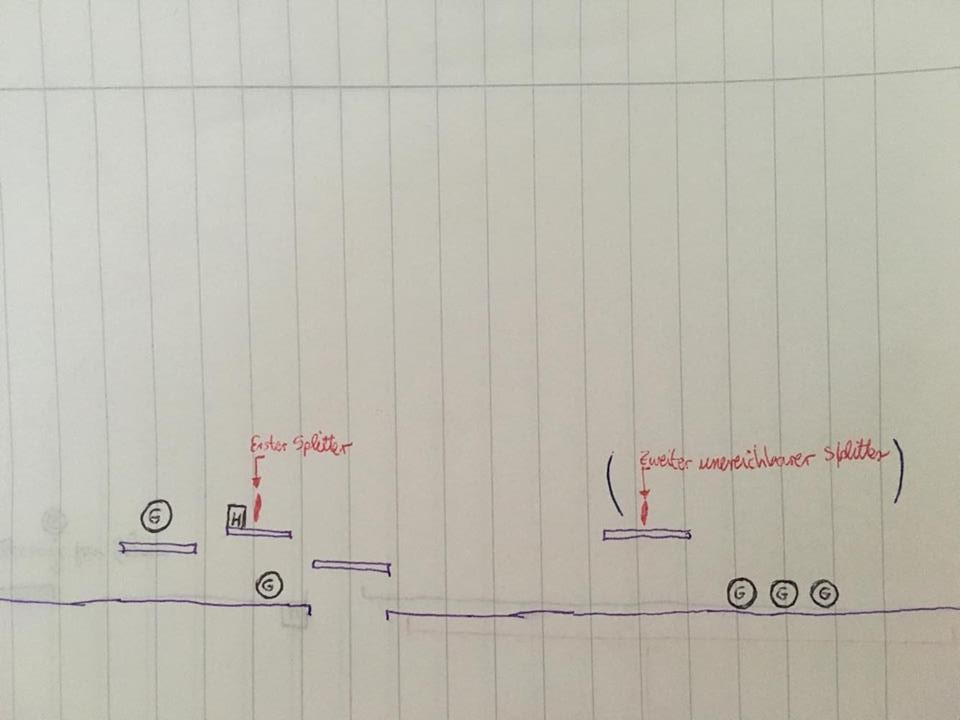 Erster Splitter
( Zweiter unereichbarer Splitter )
G
H
G
G G G